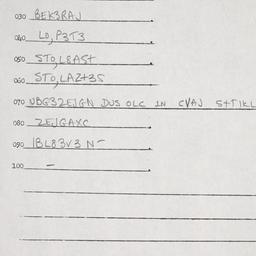 030 BEK3RAJ.
040 LD,P3T3.
050 STO,L8A5t.
060 STO,LAZ+35.
070 UBG3ZEJGN DUS OLC IN CVAJ S+TIKL
080 ZEJGAXC.
090 IBL83V3 N-.
100 -.